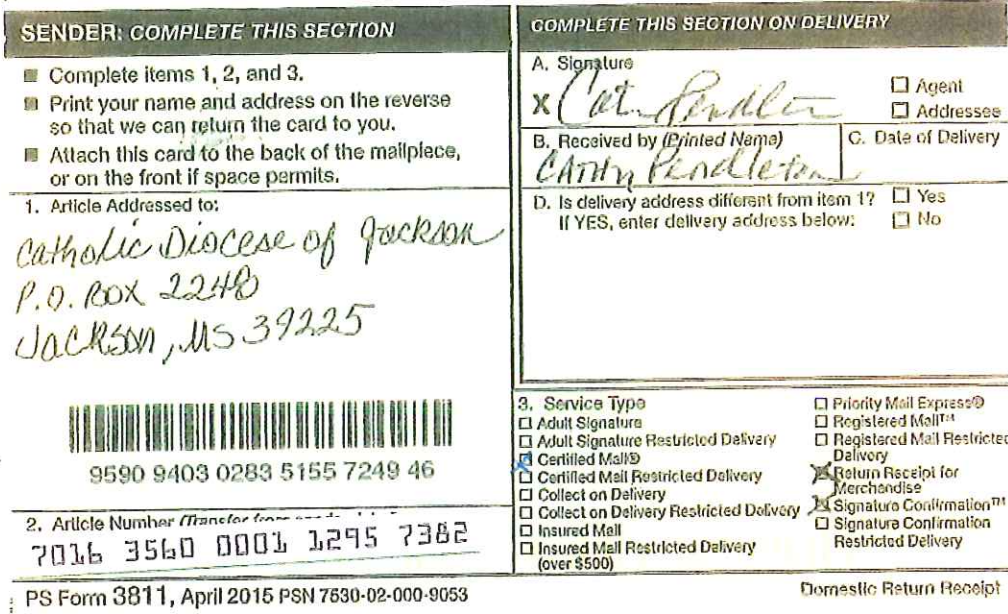 SENDER: COMPLETE THIS SECTION
Complete items 1, 2, and 3.
Print your name and address on the reverse
so that we can return the card to you.
Attach this card to the back of the mailpiece,
or on the front if space permits.
1. Article Addressed to:
Catholic Diocese of Jackson
P.O. Box 2248
Jackson, MS 39225
9590 9403 0283 5155 7249 46
2. Article Number (Transfer from
7016 3560 0001 1295 7382
PS Form 3811, April 2015 PSN 7530-02-000-9053
COMPLETE THIS SECTION ON DELIVERY
A. Signature
X
Agent
Addressee
B. Received by (Printed Name)
Cathy Pendleton
C. Date of Delivery
D. Is delivery address different from item 1?
If YES, enter delivery address below:
Yes
No
3. Service Type
Adult Signature
Adult Signature Restricted Delivery
Certified Mail®
Certified Mail Restricted Delivery
Collect on Delivery
Collect on Delivery Restricted Delivery
Insured Mail
Insured Mail Restricted Delivery
(over $500)
Priority Mail Express®
Registered Mail™
Registered Mail Restricted
Delivery
Return Receipt for
Merchandise
Signature Confirmation™
Signature Confirmation
Restricted Delivery
Domestic Return Receipt